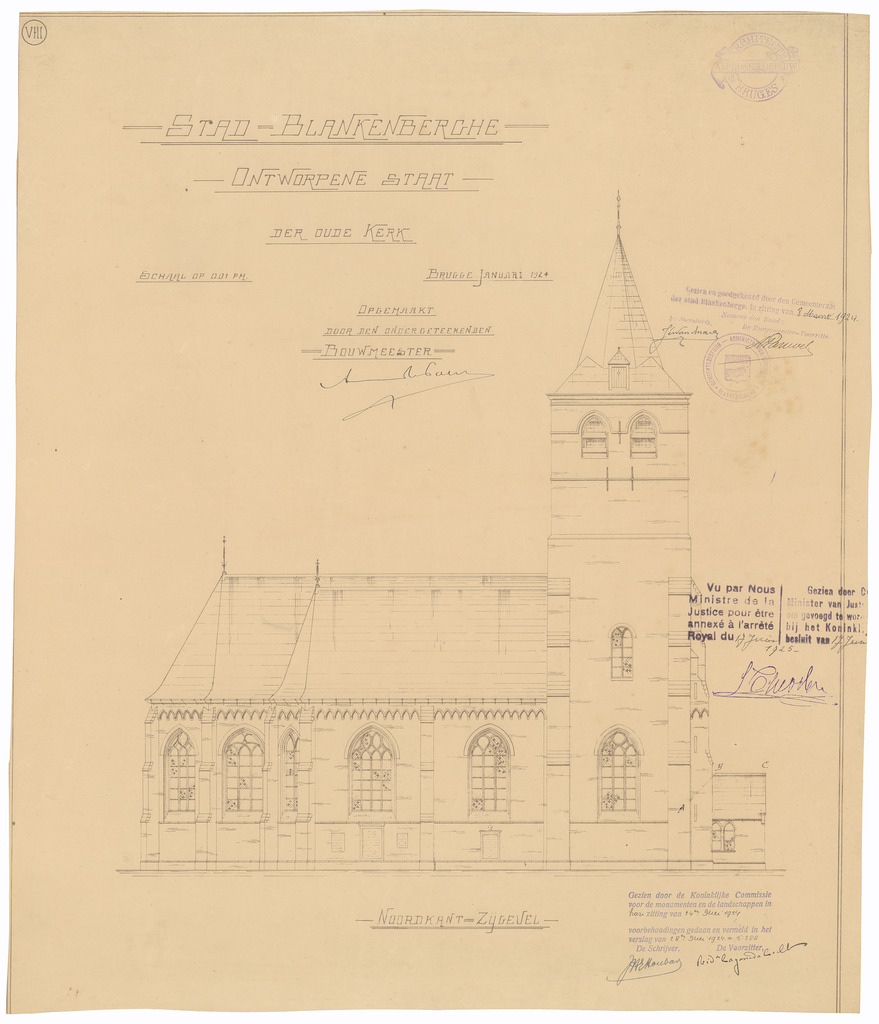 VIII
BRUGES
STAD = BLANKENBERGHE
ONTWORPENE STAAT
DER OUDE KERK
SCHAAL OP 0.01 P.M.
BRUGGE JANUARI 1924
OPGEMAAKT
DOOR DEN ONDERGETEEKENDEN
BOUWMEESTER
Gezien en goedgekeurd door den Gemeenteraad
der stad Blankenberge, in zitting van 8 Maart 1924.
Vu par Nous
Ministre de la
Justice pour être
annexé à l'arrêté
Royal du 17 Juin
1925
Gezien door
Minister van Jus
gevoegd te wor
bij het Koninkl.
besluit van 17 Juin
B C
A
NOORDKANT = ZYGEVEL
Gezien door de Koninklijke Commissie
voor de monumenten en de landschappen in
hare zitting van 24n Mei 1924
voorbehoudingen gedaan en vermeld in het
verslag van 28n Mei 1924
De Schrijver, De Voorzitter,